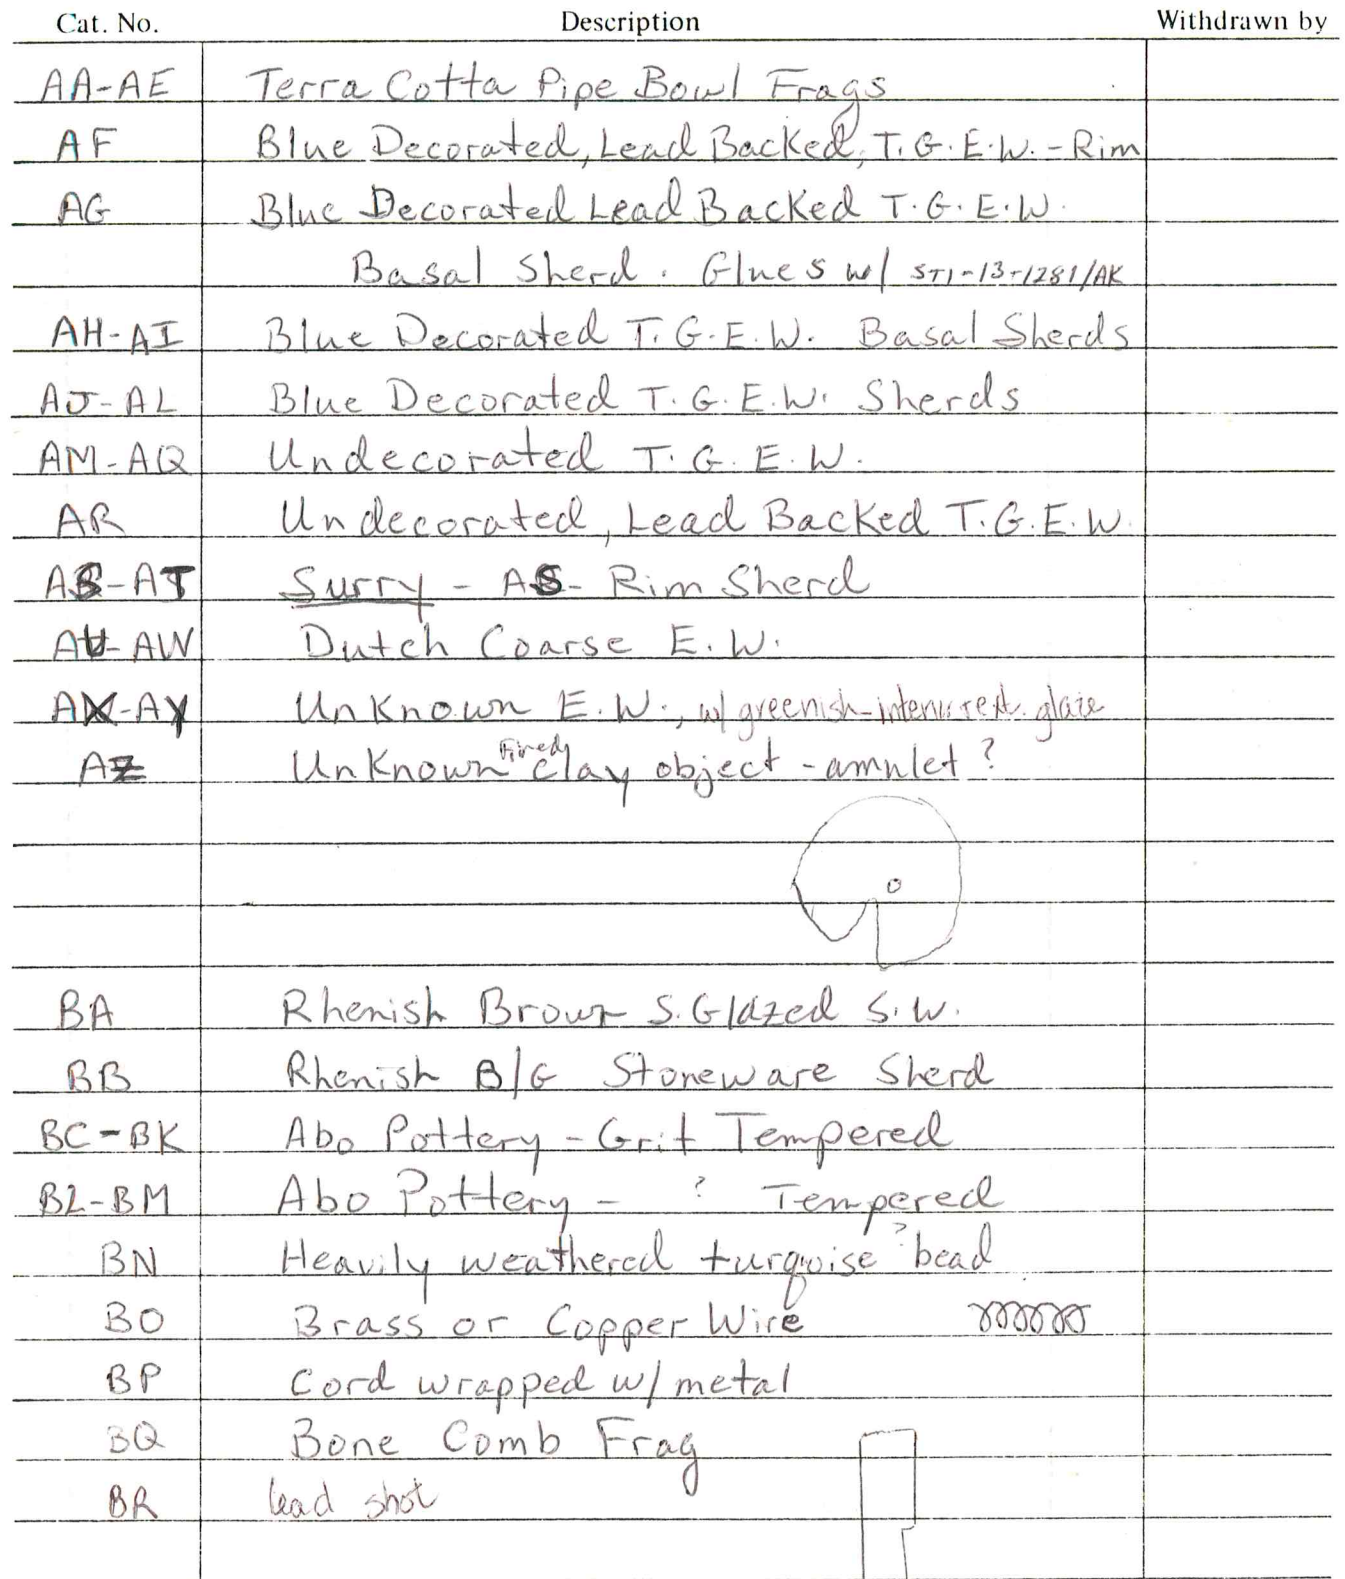 Cat. No. Description Withdrawn by
AA-AE Terra Cotta Pipe Bowl Frags
AF Blue Decorated, Lead Backed, T.G.E.W. - Rim
AG Blue Decorated Lead Backed T.G.E.W.
Basal Sherd. Glues w/ ST1-13-1281/AK
AH-AI Blue Decorated T.G.E.W. Basal Sherds
AJ-AL Blue Decorated T.G.E.W. Sherds
AM-AQ Undecorated T.G.E.W.
AR Undecorated, Lead Backed T.G.E.W.
AS-AT Surry - AS- Rim Sherd
AU-AW Dutch Coarse E.W.
AX-AY Unknown E.W., w/ greenish glaze
AZ Unknown Fired clay object - amulet?
BA Rhenish Brown S. Glazed S.W.
BB Rhenish B/G Stoneware Sherd
BC-BK Abo Pottery - Grit Tempered
BL-BM Abo Pottery - ? Tempered
BN Heavily weathered turquoise? bead
BO Brass or Copper Wire
BP Cord wrapped w/ metal
BQ Bone Comb Frag
BR lead shot